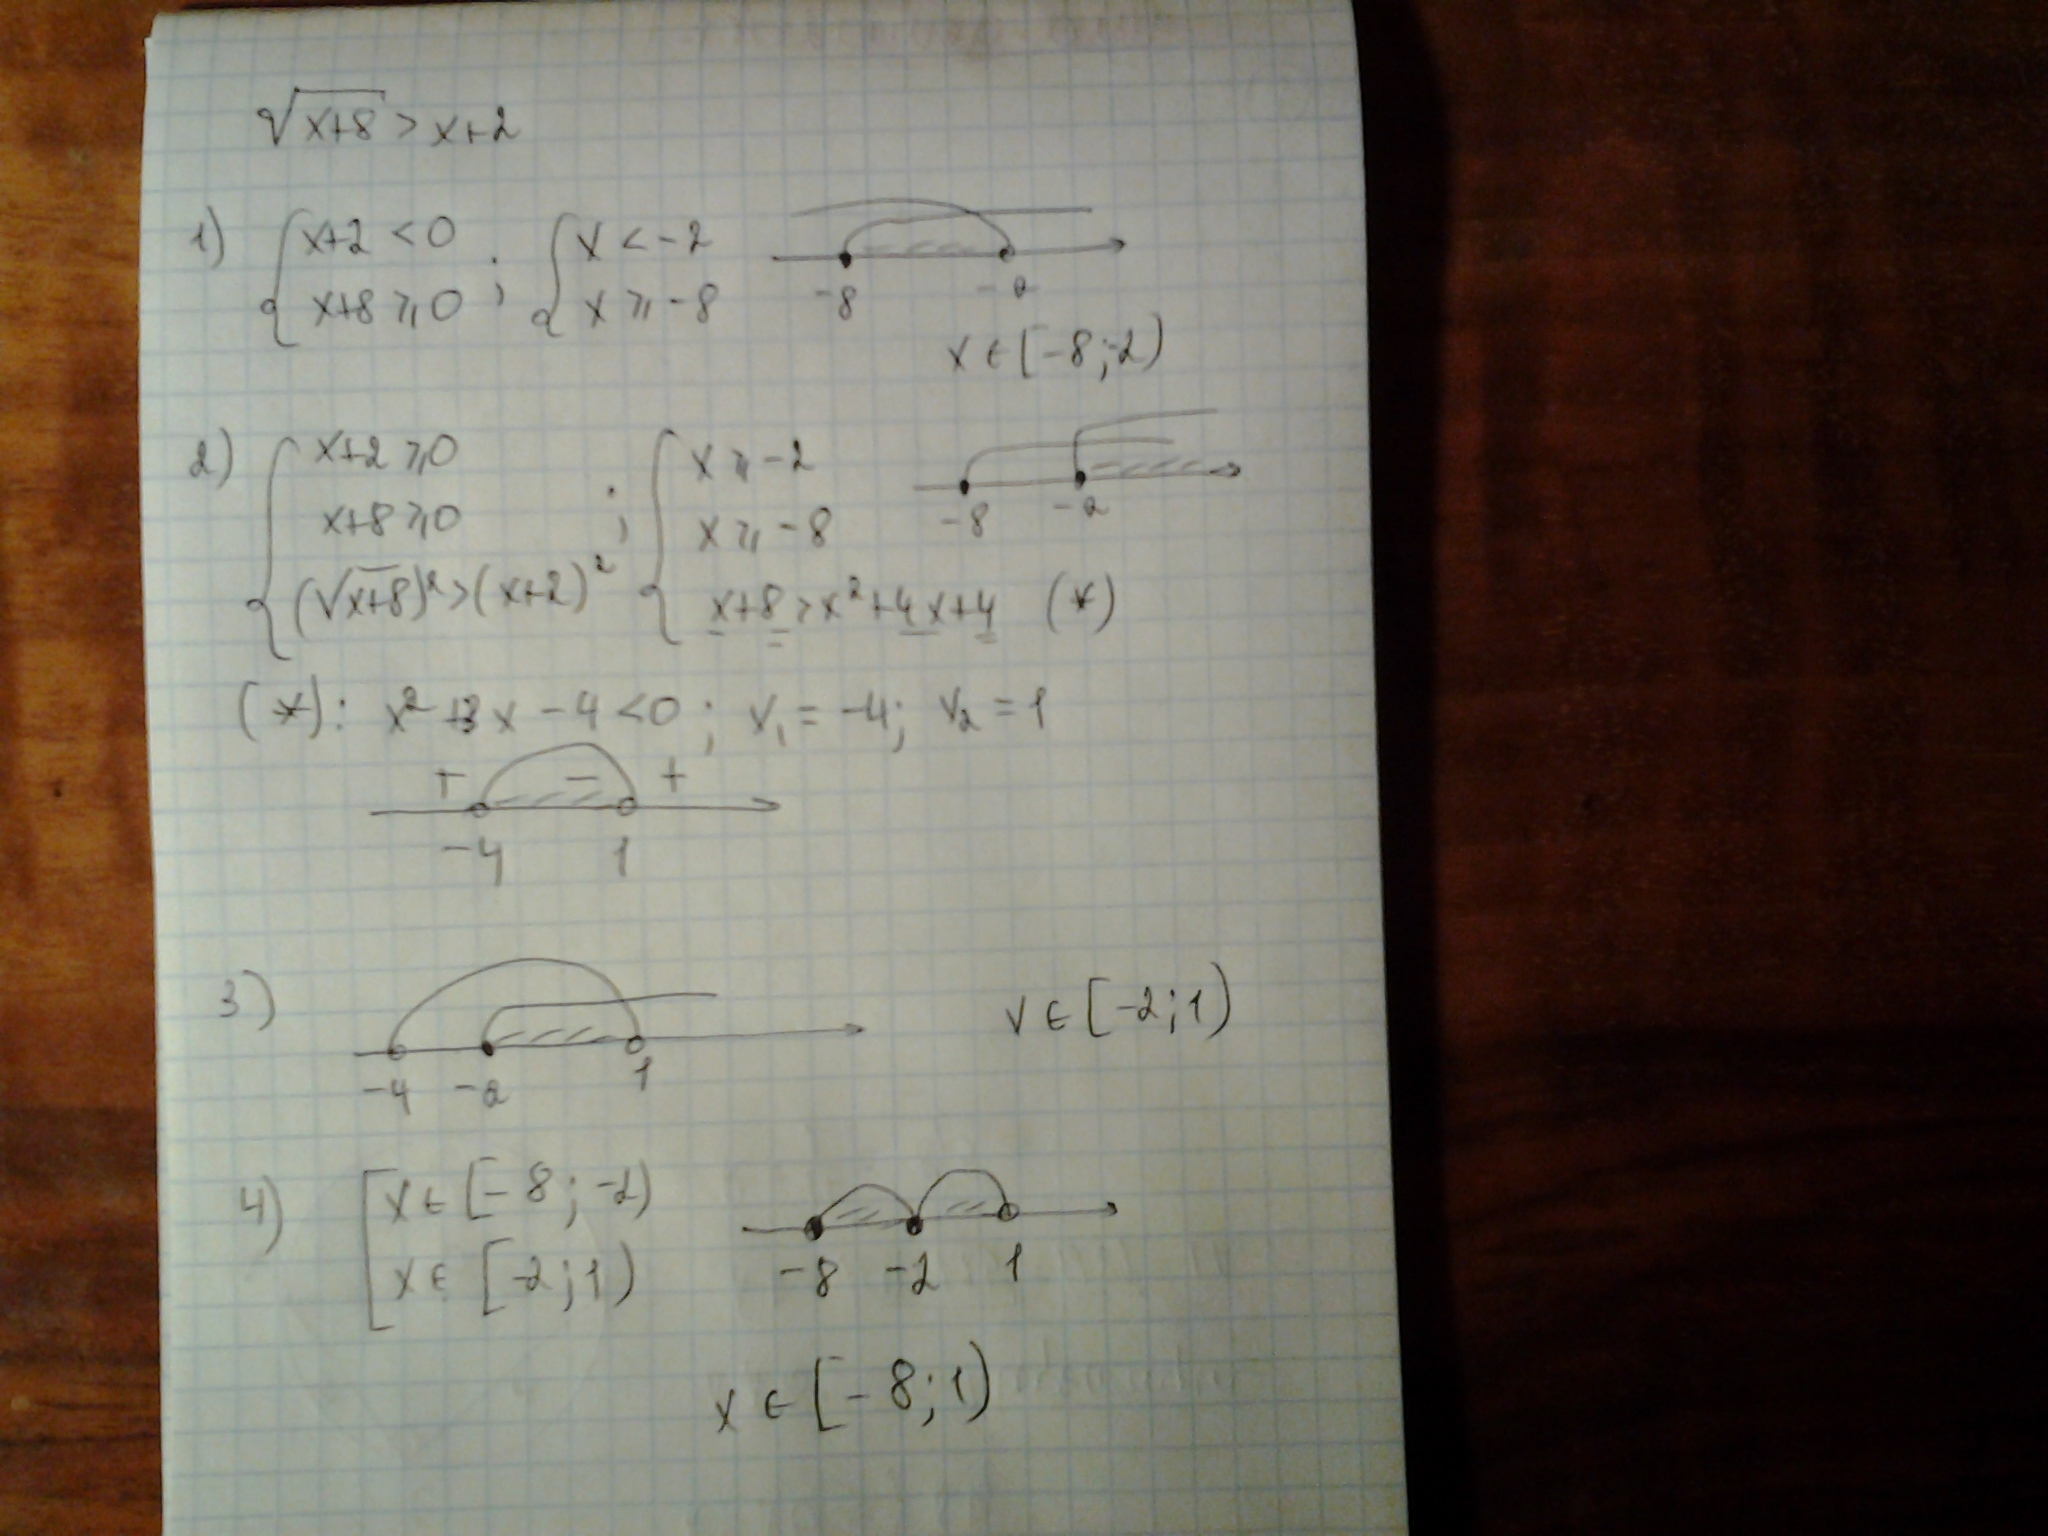 √x+8 > x+2
1) { x+2 < 0 ; { x < -2
x+8 ⩾ 0 x ⩾ -8
-8 -2
x ∈ [-8; -2)
2) { x+2 ⩾ 0 ; { x ⩾ -2
x+8 ⩾ 0 x ⩾ -8
-8 -2
(√x+8)² > (x+2)² x+8 > x²+4x+4 (*)
(*): x²+3x-4<0; x₁ = -4; x₂ = 1
+ - +
-4 1
3) x ∈ [-2; 1)
-4 -2 1
4) [ x ∈ [-8; -2)
x ∈ [-2; 1)
-8 -2 1
x ∈ [-8; 1)